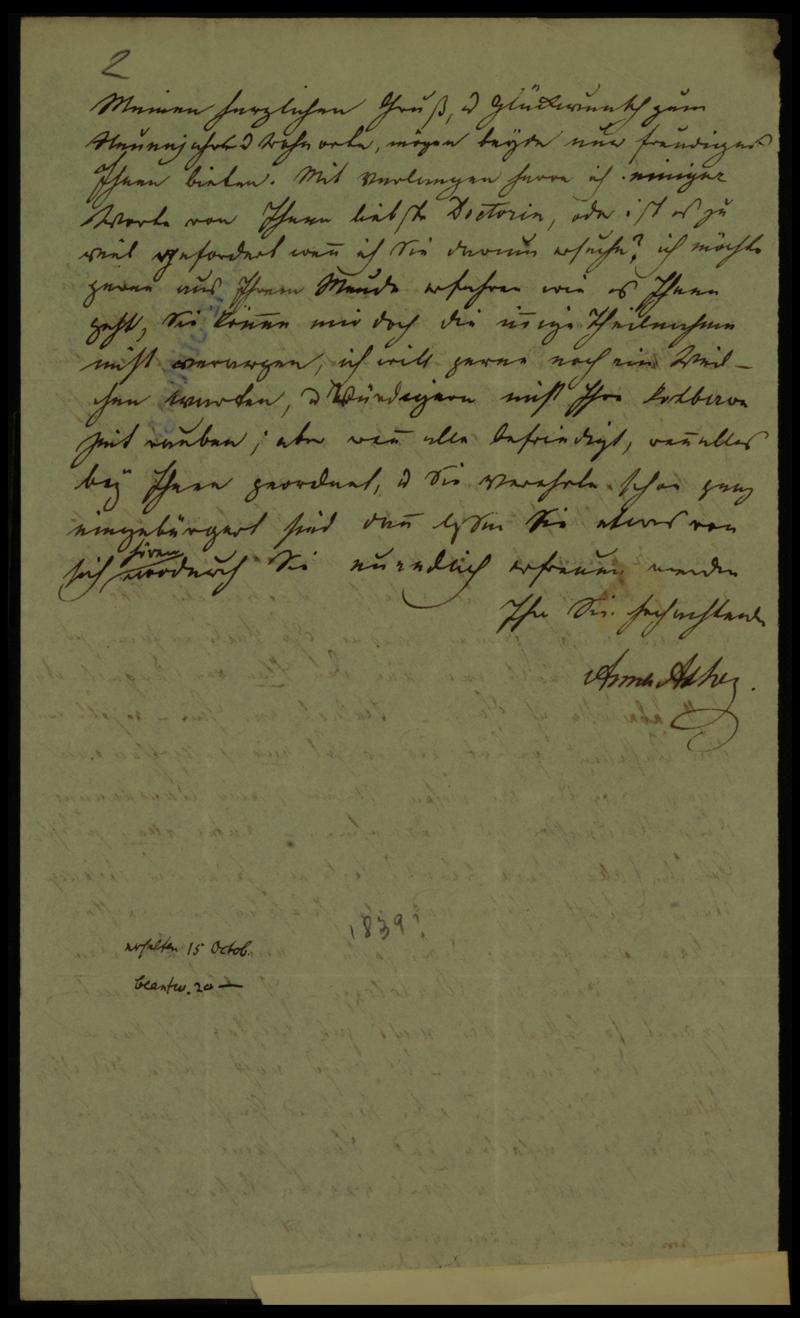 2
Meinen herzlichen Gruß, u Glückwunsch zum
Neuenjahre u Wohnorte, mögen beyde nur freudiges
Ihnen bieten. Mit Verlangen harre ich einiger
Worte von Ihnen liebste Doctorin, oder ist es zu
viel gefordert wen̄ ich Sie darum ersuche? ich möchte
gerne aus Ihrem Munde erfahren wie es Ihnen
geht, Sie kön̄en mir doch die in̄ige Theilnahme
nicht verargen, ich will gerne noch ein Weil-
chen warten, u Würdigern nicht Ihre kostbare
Zeit rauben; aber wen̄ alle befriedigt, wen̄ alles
bey Ihnen geordnet, u Sie Verehrte schon ganz
eingebürgert sind dan̄ lassen Sie etwas von
sich hören wodurch Sie unendlich erfreuen werden
Ihre Sie hochachtende
Anna Asher.
1839?
erhalten 15 Octob.
beantw. 20 —